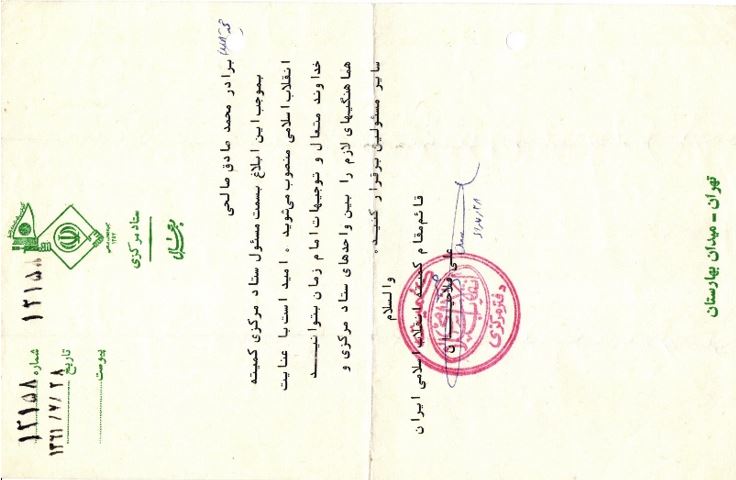 شماره ۱۲۱۵۸
تاریخ ۱۳۶۱/۷/۲۸
پیوست
۱۲۱۵۸
ستاد مرکزی
برادر محمد صادق صالحی
بموجب این ابلاغ بسمت مسئول ستاد مرکزی کمیته
انقلاب اسلامی منصوب می‌شوید . امید است با عنایت
خداوند متعال و توجهات امام زمان بتوانیـــد
هماهنگیهای لازم را بین واحدهای ستاد مرکزی و
سایر مسئولین برقرار کنید.
والسلام
قائم مقام کمیته انقلاب اسلامی ایران
علی فلاحیـــان
دفتر مرکزی
تهران - میدان بهارستان